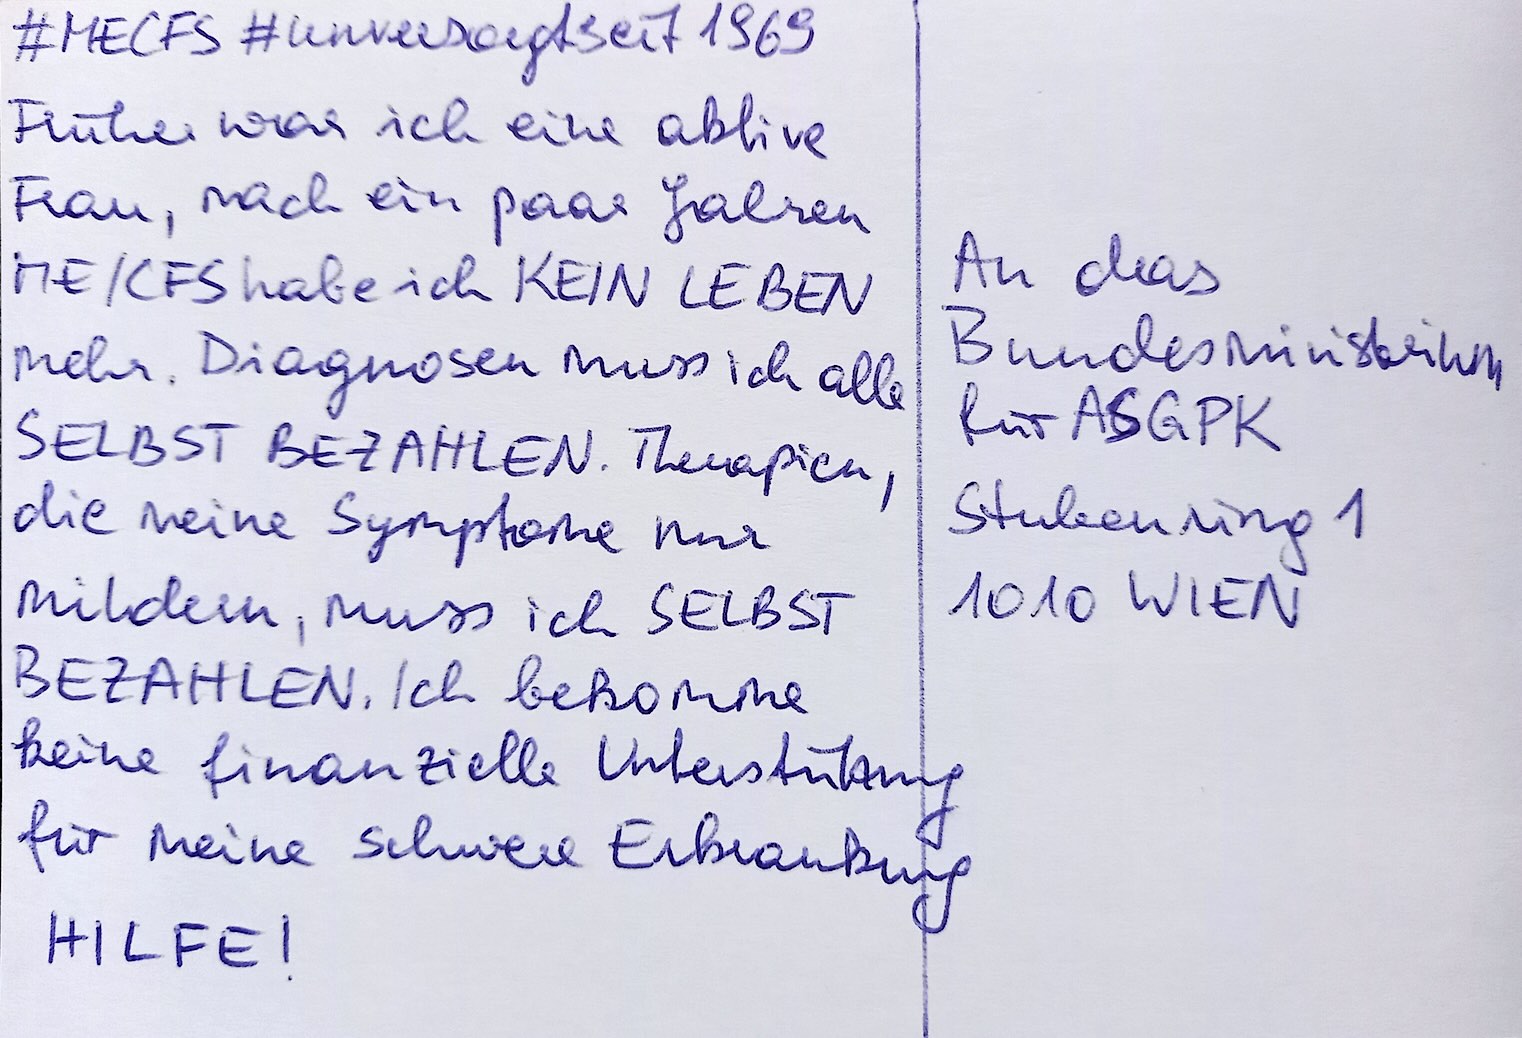 #MECFS #unversorgtseit1969
Früher war ich eine aktive
Frau, nach ein paar Jahren
ME/CFS habe ich KEIN LEBEN
mehr. Diagnosen muss ich alle
SELBST BEZAHLEN. Therapien,
die meine Symptome nur
mildern, muss ich SELBST
BEZAHLEN. Ich bekomme
keine finanzielle Unterstützung
für meine schwere Erkrankung
HILFE!
An das
Bundesministerium
für ASGPK
Stubenring 1
1010 WIEN